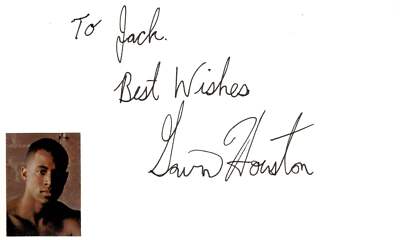 To Jack.
Best Wishes
Gavin Houston